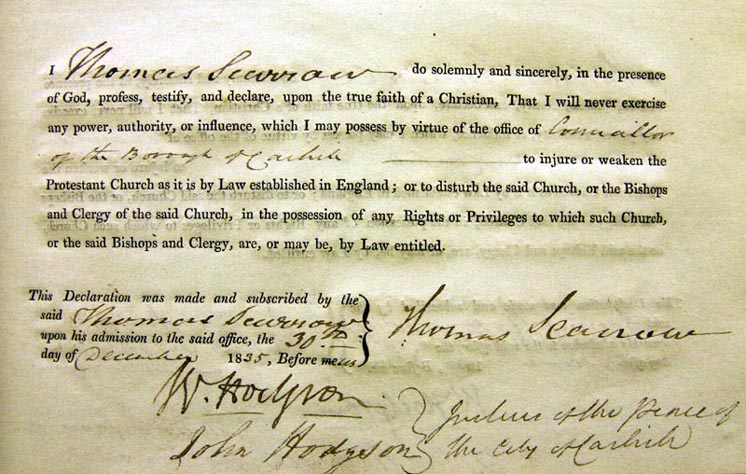 I Thomas Scarrow do solemnly and sincerely, in the presence
of God, profess, testify, and declare, upon the true faith of a Christian, That I will never exercise
any power, authority, or influence, which I may possess by virtue of the office of Councillor
of the Borough of Carlisle to injure or weaken the
Protestant Church as it is by Law established in England; or to disturb the said Church, or the Bishops
and Clergy of the said Church, in the possession of any Rights or Privileges to which such Church,
or the said Bishops and Clergy, are, or may be, by Law entitled.
This Declaration was made and subscribed by the
said Thomas Scarrow
upon his admission to the said office, the 30th
day of December 1835, Before us
Thomas Scarrow
W. Hodgson
John Hodgson
Justices of the Peace of
the City of Carlisle